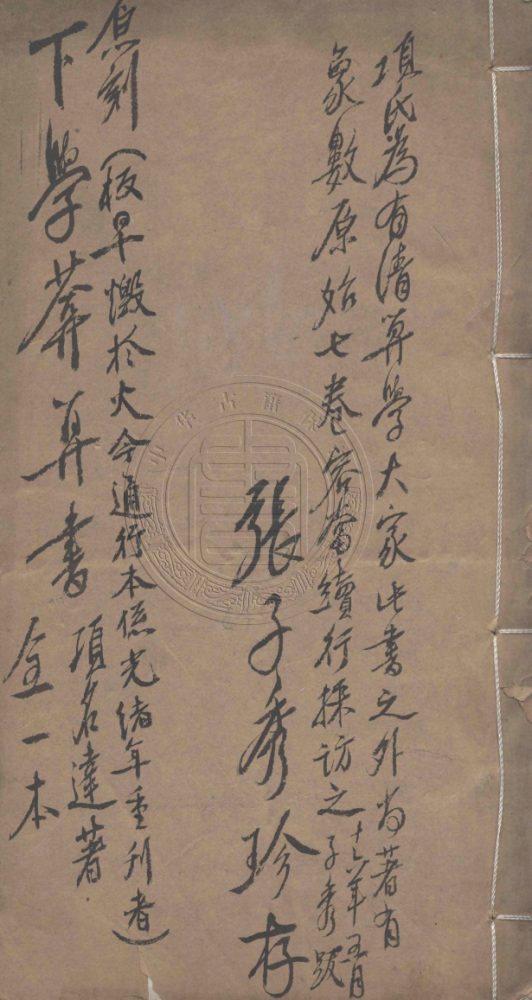 項氏為有清算學大家此書之外尚著有
象數原始七卷容當續行採訪之
十六年五月
子秀識
張子秀珍存
原刻(板早燬於火今通行本係光緒年重刊者)
下學葊算書
項名達著
全一本
中华古籍